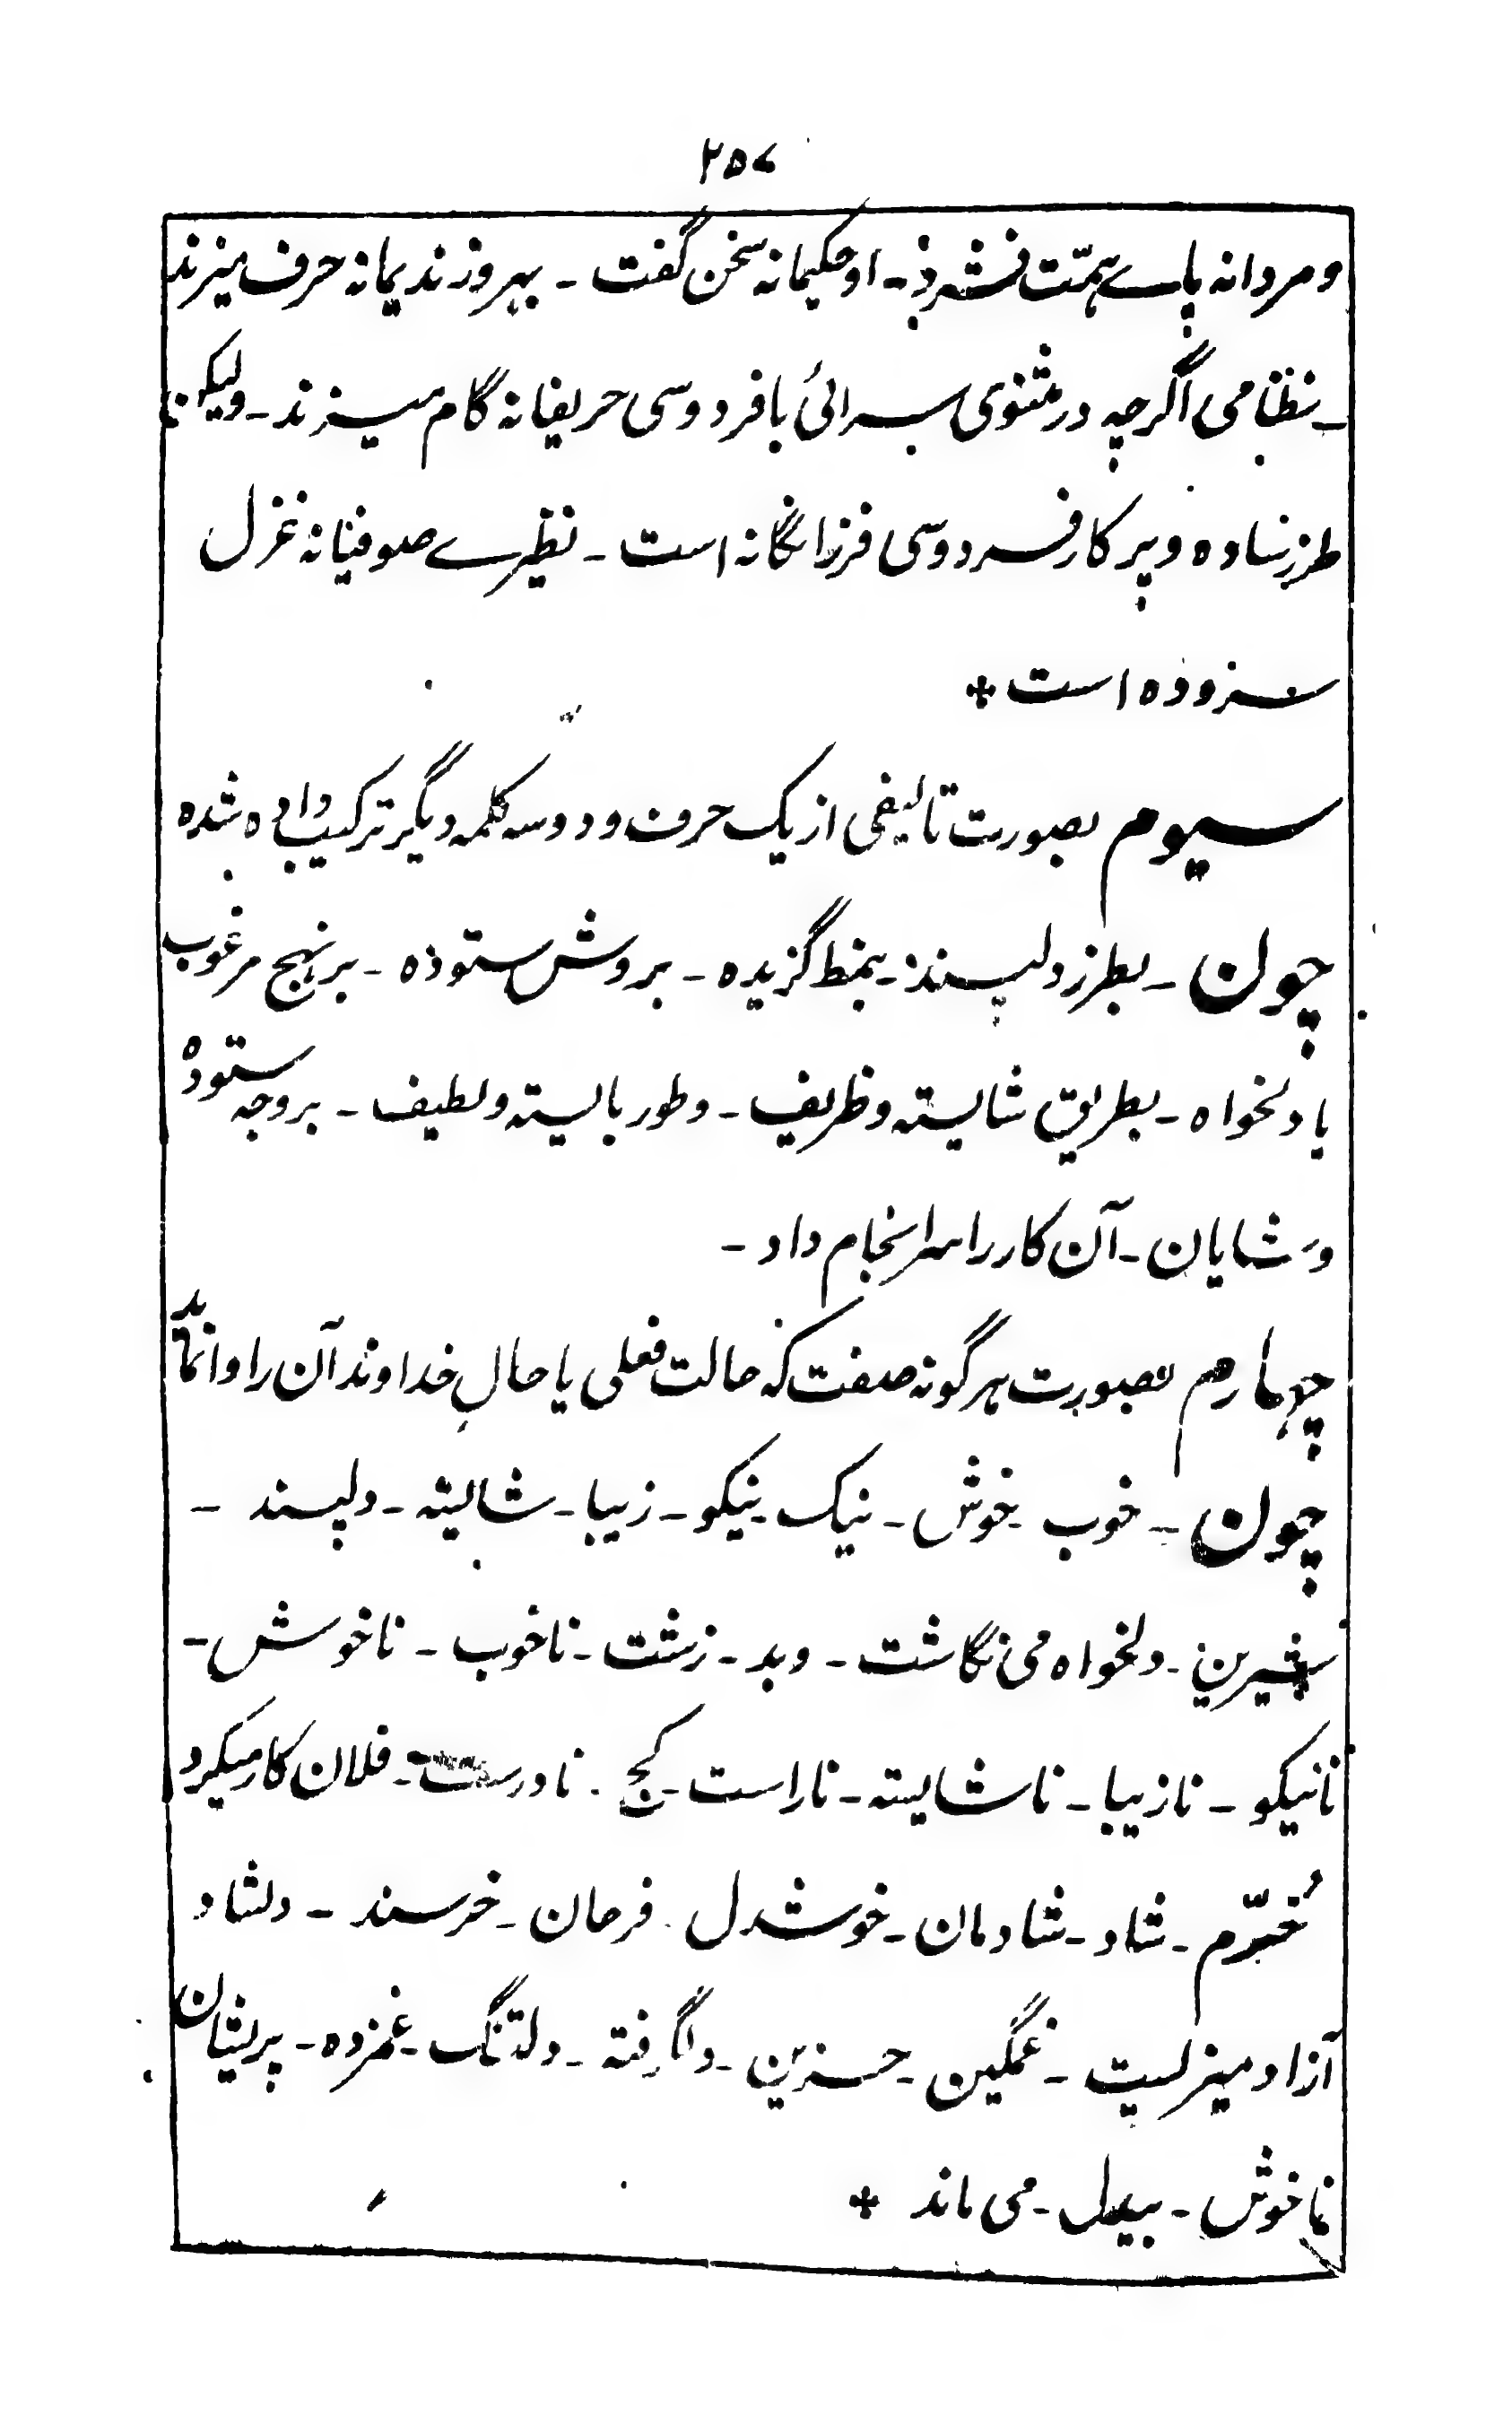 ۲۵۷
و مردانه پاے ہمّت فشرد۔ او حکیمانه سخن گفت ۔ بہروز ندیمانه حرف میزند
۔ نظامی اگرچه در مثنوی سرائی با فردوسی حریفانه گام میزند ۔ ولیکن
طرز ساده و پرکار فردوسی فرزانگانه است ۔ نظیرے صوفیانه غزل
سروده است *
سیوم بصورت تالیفی از یک حرف و دو سه کلمه دیگر ترکیب داده شده
چون ۔ بطرز دلپسند ۔ بنمط گزیده ۔ بروش ستوده ۔ بر نہج مرغوب
یا دلخواه ۔ بطریق شایسته و ظریف ۔ و طور بایسته و لطیف ۔ بروجه ستوده
و شایان ۔ آن کار را سرانجام داد ۔
چہارم بصورت ہر گونه صفت که حالت فعلی یا حالِ خداوند آن را وانماید
چون ۔ خوب ۔ خوش ۔ نیک ۔ نیکو ۔ زیبا ۔ شایسته ۔ دلپسند ۔
شیرین ۔ دلخواه می نگاشت ۔ و بد ۔ زشت ۔ ناخوب ۔ ناخوش ۔
نانیکو ۔ نازیبا ۔ ناشایسته ۔ ناراست ۔ کج ۔ نادرست ۔ فلان کار میکرد
خُرّم ۔ شاد ۔ شادمان ۔ خوشدل ۔ فرحان ۔ خرسند ۔ دلشاد
آزاد میزیست ۔ غمگین ۔ حزین ۔ واگرفته ۔ دلتنگ ۔ غمزده ۔ پریشان
ناخوش ۔ بیدل ۔ می ماند *